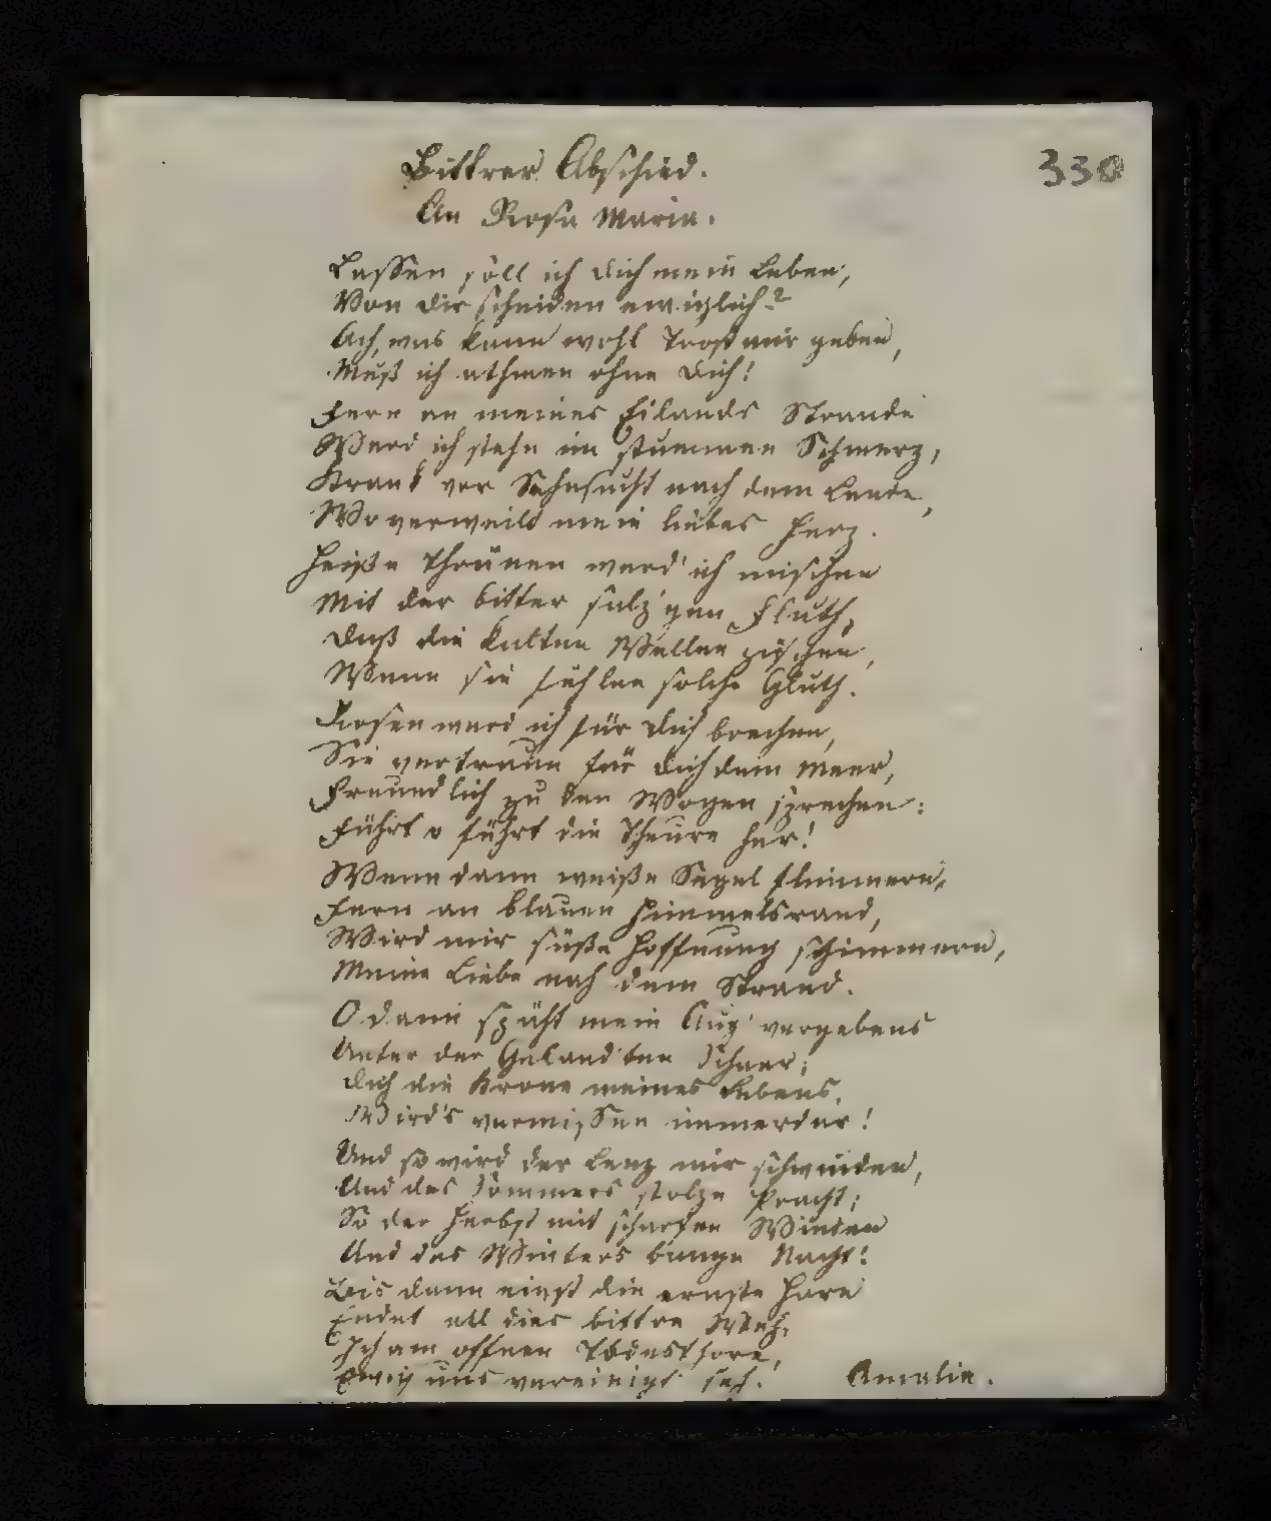 Bittrer Abschied.
338
An Rosa Maria.
Lassen soll ich dich mein Leben,
Von dir scheiden ewiglich?
Ach, was kann wohl Trost mir geben,
Muß ich athmen ohne dich!
Fern an meines Eilands Strande
Werd ich stehn im stummen Schmerz,
Krank vor Sehnsucht nach dem Lande,
Wo verweilt mein liebes Herz.
Heiße Thränen werd' ich mischen
Mit der bitter salz'gen Fluth,
Daß die kalten Wellen zischen,
Wenn sie fühlen solche Gluth.
Rosen werd ich für dich brechen,
Sie vertraun für dich dem Meer,
Freundlich zu den Wogen sprechen:
Führt o führt die Theure her!
Wenn dann weiße Segel flimmern,
Fern an blauen Himmelsrand,
Wird mir süße Hoffnung schimmern,
Meine Liebe nah dem Strand.
O dann späht mein Aug' vergebens
Unter der Geland'ten Schaar;
Dich die Krone meines Lebens,
Wird's vermissen immerdar!
Und so wird der Lenz mir schwinden,
Und des Sommers stolze Pracht;
So der Herbst mit scharfen Winden
Und des Winters bange Nacht!
Bis dann einst die ernste Hore
Endet all dies bittre Weh,
Ich am offnen Todesthore,
Ewig uns vereinigt seh.
Amalia.